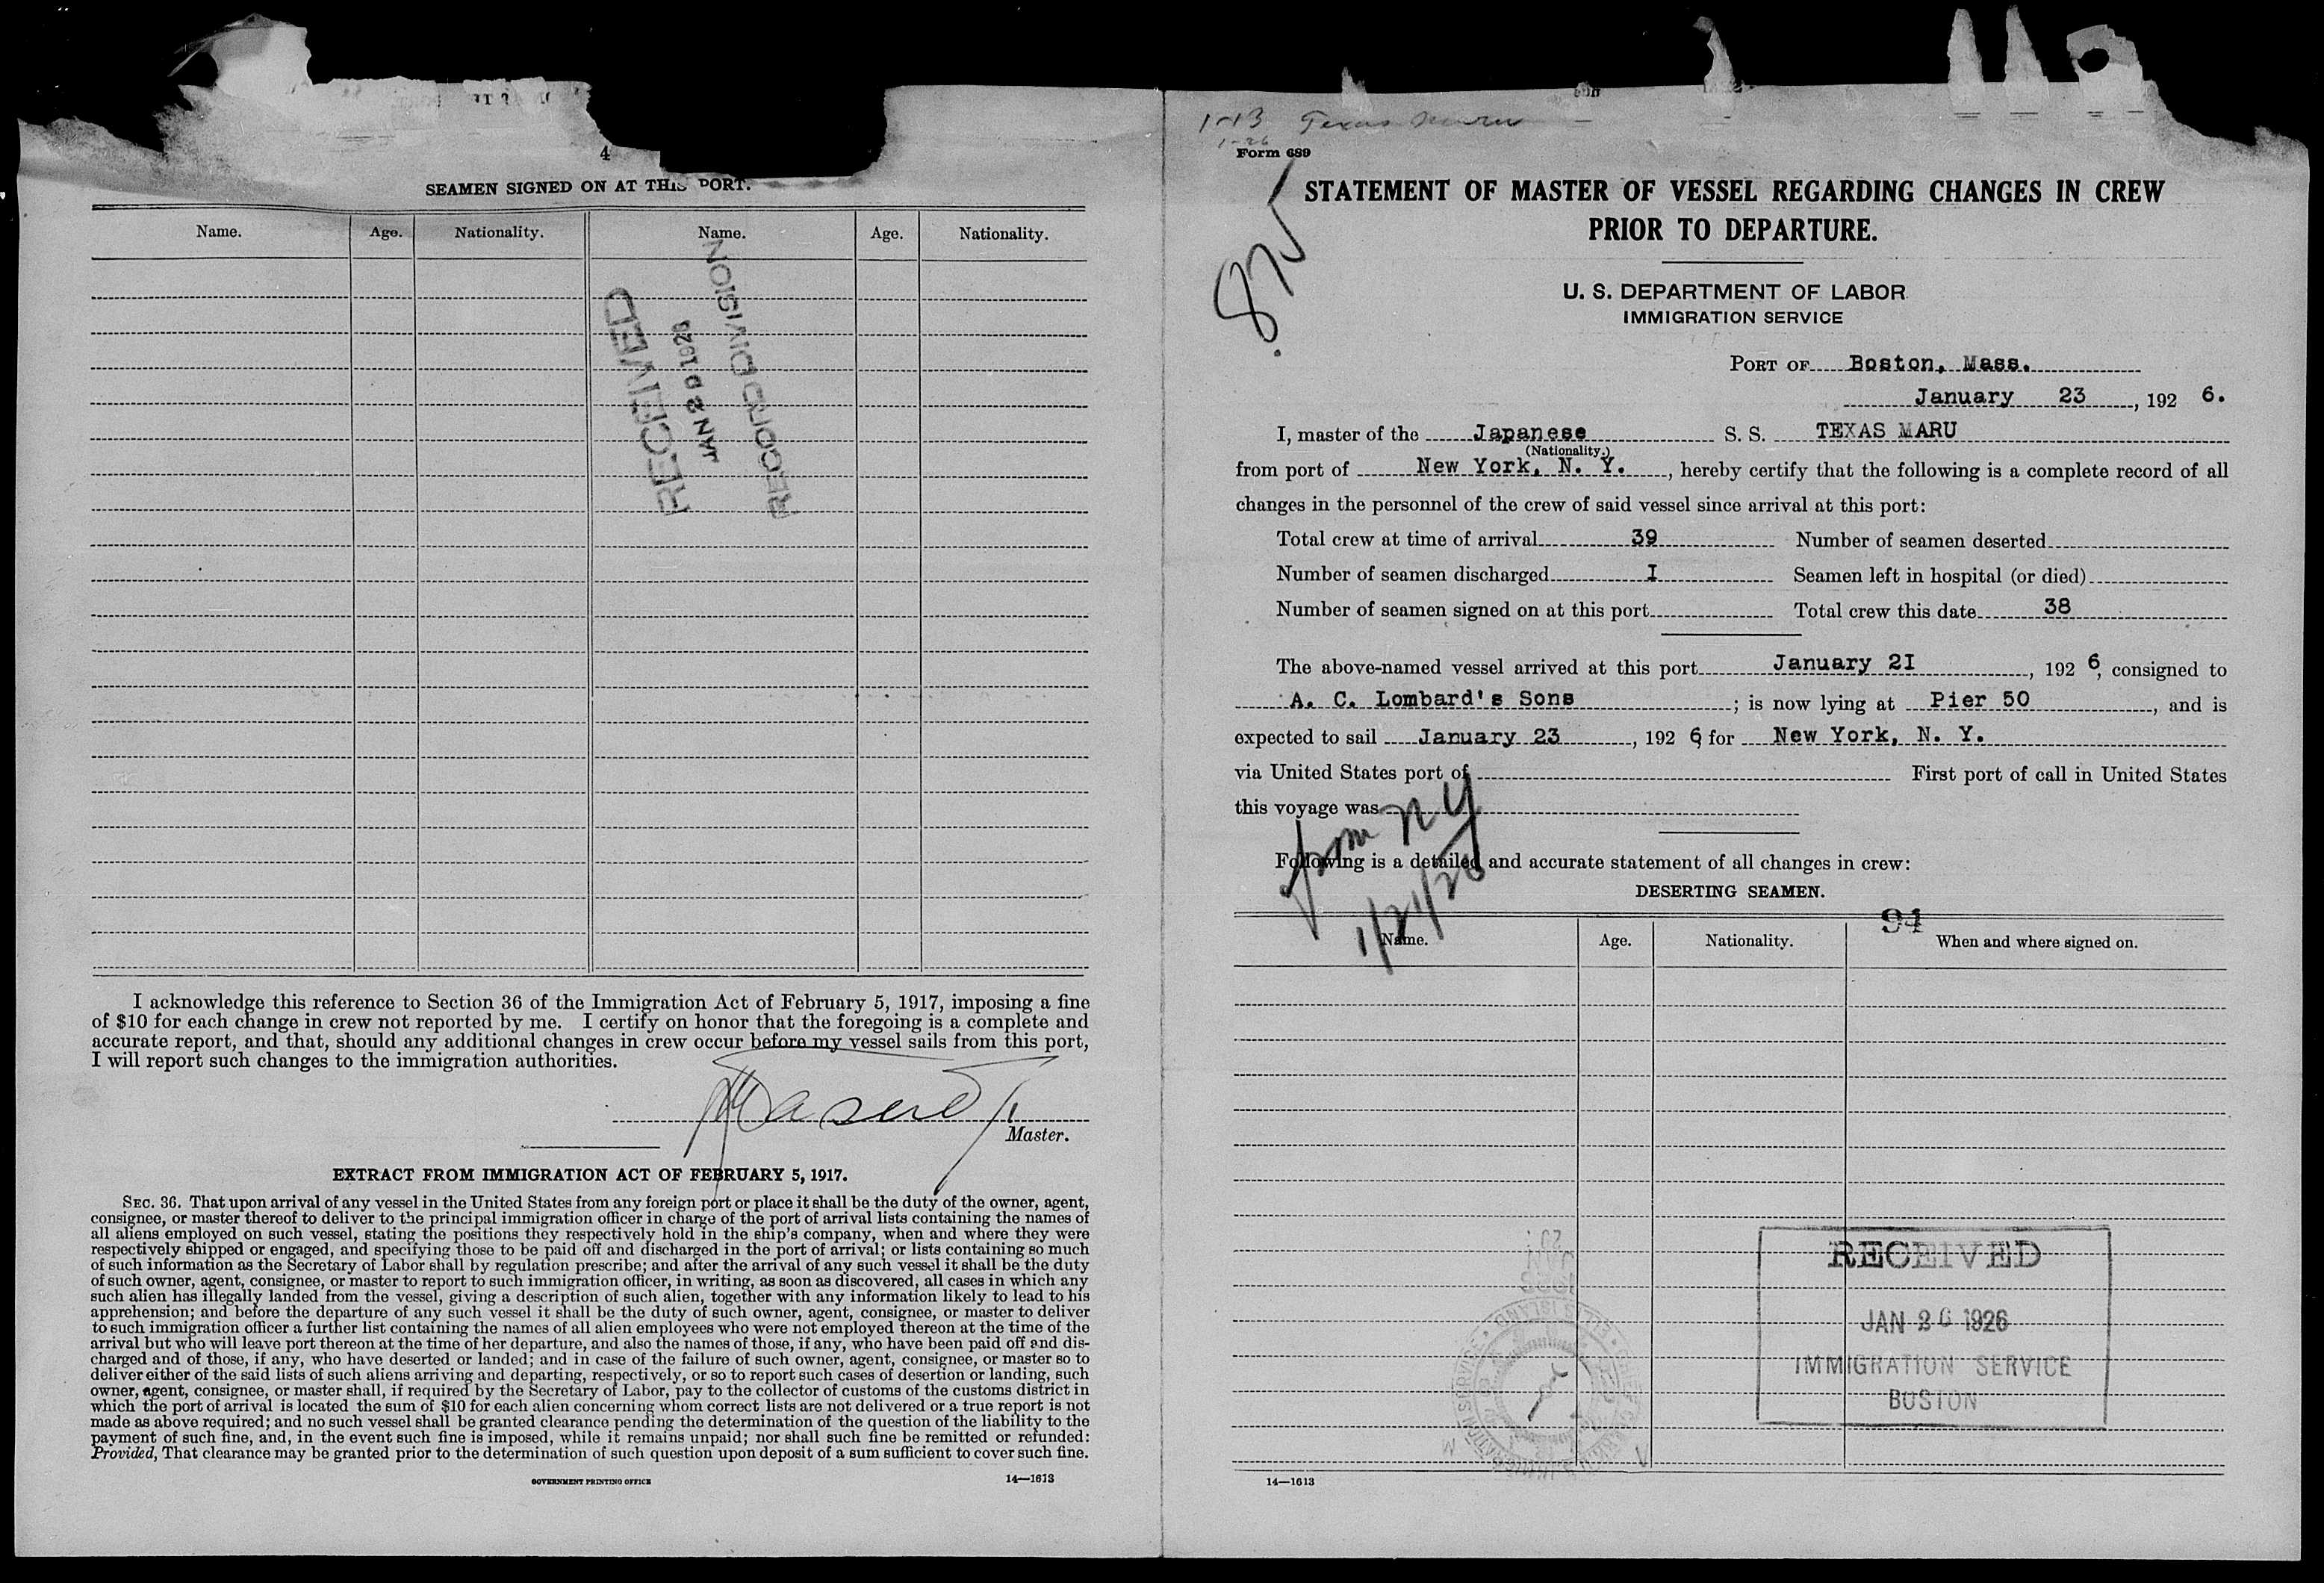 4
SEAMEN SIGNED ON AT THIS PORT.
Name. Age. Nationality. Name. Age. Nationality.
RECEIVED
JAN 20 1926
RECORD DIVISION
I acknowledge this reference to Section 36 of the Immigration Act of February 5, 1917, imposing a fine
of $10 for each change in crew not reported by me. I certify on honor that the foregoing is a complete and
accurate report, and that, should any additional changes in crew occur before my vessel sails from this port,
I will report such changes to the immigration authorities.
Master.
EXTRACT FROM IMMIGRATION ACT OF FEBRUARY 5, 1917.
SEC. 36. That upon arrival of any vessel in the United States from any foreign port or place it shall be the duty of the owner, agent,
consignee, or master thereof to deliver to the principal immigration officer in charge of the port of arrival lists containing the names of
all aliens employed on such vessel, stating the positions they respectively hold in the ship's company, when and where they were
respectively shipped or engaged, and specifying those to be paid off and discharged in the port of arrival; or lists containing so much
of such information as the Secretary of Labor shall by regulation prescribe; and after the arrival of any such vessel it shall be the duty
of such owner, agent, consignee, or master to report to such immigration officer, in writing, as soon as discovered, all cases in which any
such alien has illegally landed from the vessel, giving a description of such alien, together with any information likely to lead to his
apprehension; and before the departure of any such vessel it shall be the duty of such owner, agent, consignee, or master to deliver
to such immigration officer a further list containing the names of all alien employees who were not employed thereon at the time of the
arrival but who will leave port thereon at the time of her departure, and also the names of those, if any, who have been paid off and dis-
charged and of those, if any, who have deserted or landed; and in case of the failure of such owner, agent, consignee, or master so to
deliver either of the said lists of such aliens arriving and departing, respectively, or so to report such cases of desertion or landing, such
owner, agent, consignee, or master shall, if required by the Secretary of Labor, pay to the collector of customs of the customs district in
which the port of arrival is located the sum of $10 for each alien concerning whom correct lists are not delivered or a true report is not
made as above required; and no such vessel shall be granted clearance pending the determination of the question of the liability to the
payment of such fine, and, in the event such fine is imposed, while it remains unpaid; nor shall such fine be remitted or refunded:
Provided, That clearance may be granted prior to the determination of such question upon deposit of a sum sufficient to cover such fine.
GOVERNMENT PRINTING OFFICE 14—1613
1-13 Texas Maru
1-26
Form 689
STATEMENT OF MASTER OF VESSEL REGARDING CHANGES IN CREW
PRIOR TO DEPARTURE.
U. S. DEPARTMENT OF LABOR
IMMIGRATION SERVICE
PORT OF Boston, Mass.
January 23, 192 6.
I, master of the Japanese S. S. TEXAS MARU
(Nationality.)
from port of New York, N. Y., hereby certify that the following is a complete record of all
changes in the personnel of the crew of said vessel since arrival at this port:
Total crew at time of arrival 39 Number of seamen deserted
Number of seamen discharged I Seamen left in hospital (or died)
Number of seamen signed on at this port Total crew this date 38
The above-named vessel arrived at this port January 2I, 192 6, consigned to
A. C. Lombard's Sons; is now lying at Pier 50, and is
expected to sail January 23, 192 6, for New York, N. Y.
via United States port of First port of call in United States
this voyage was
from NY
1/21/26
Following is a detailed and accurate statement of all changes in crew:
DESERTING SEAMEN.
94
Name. Age. Nationality. When and where signed on.
RECEIVED
JAN 26 1926
IMMIGRATION SERVICE
BOSTON
14—1613